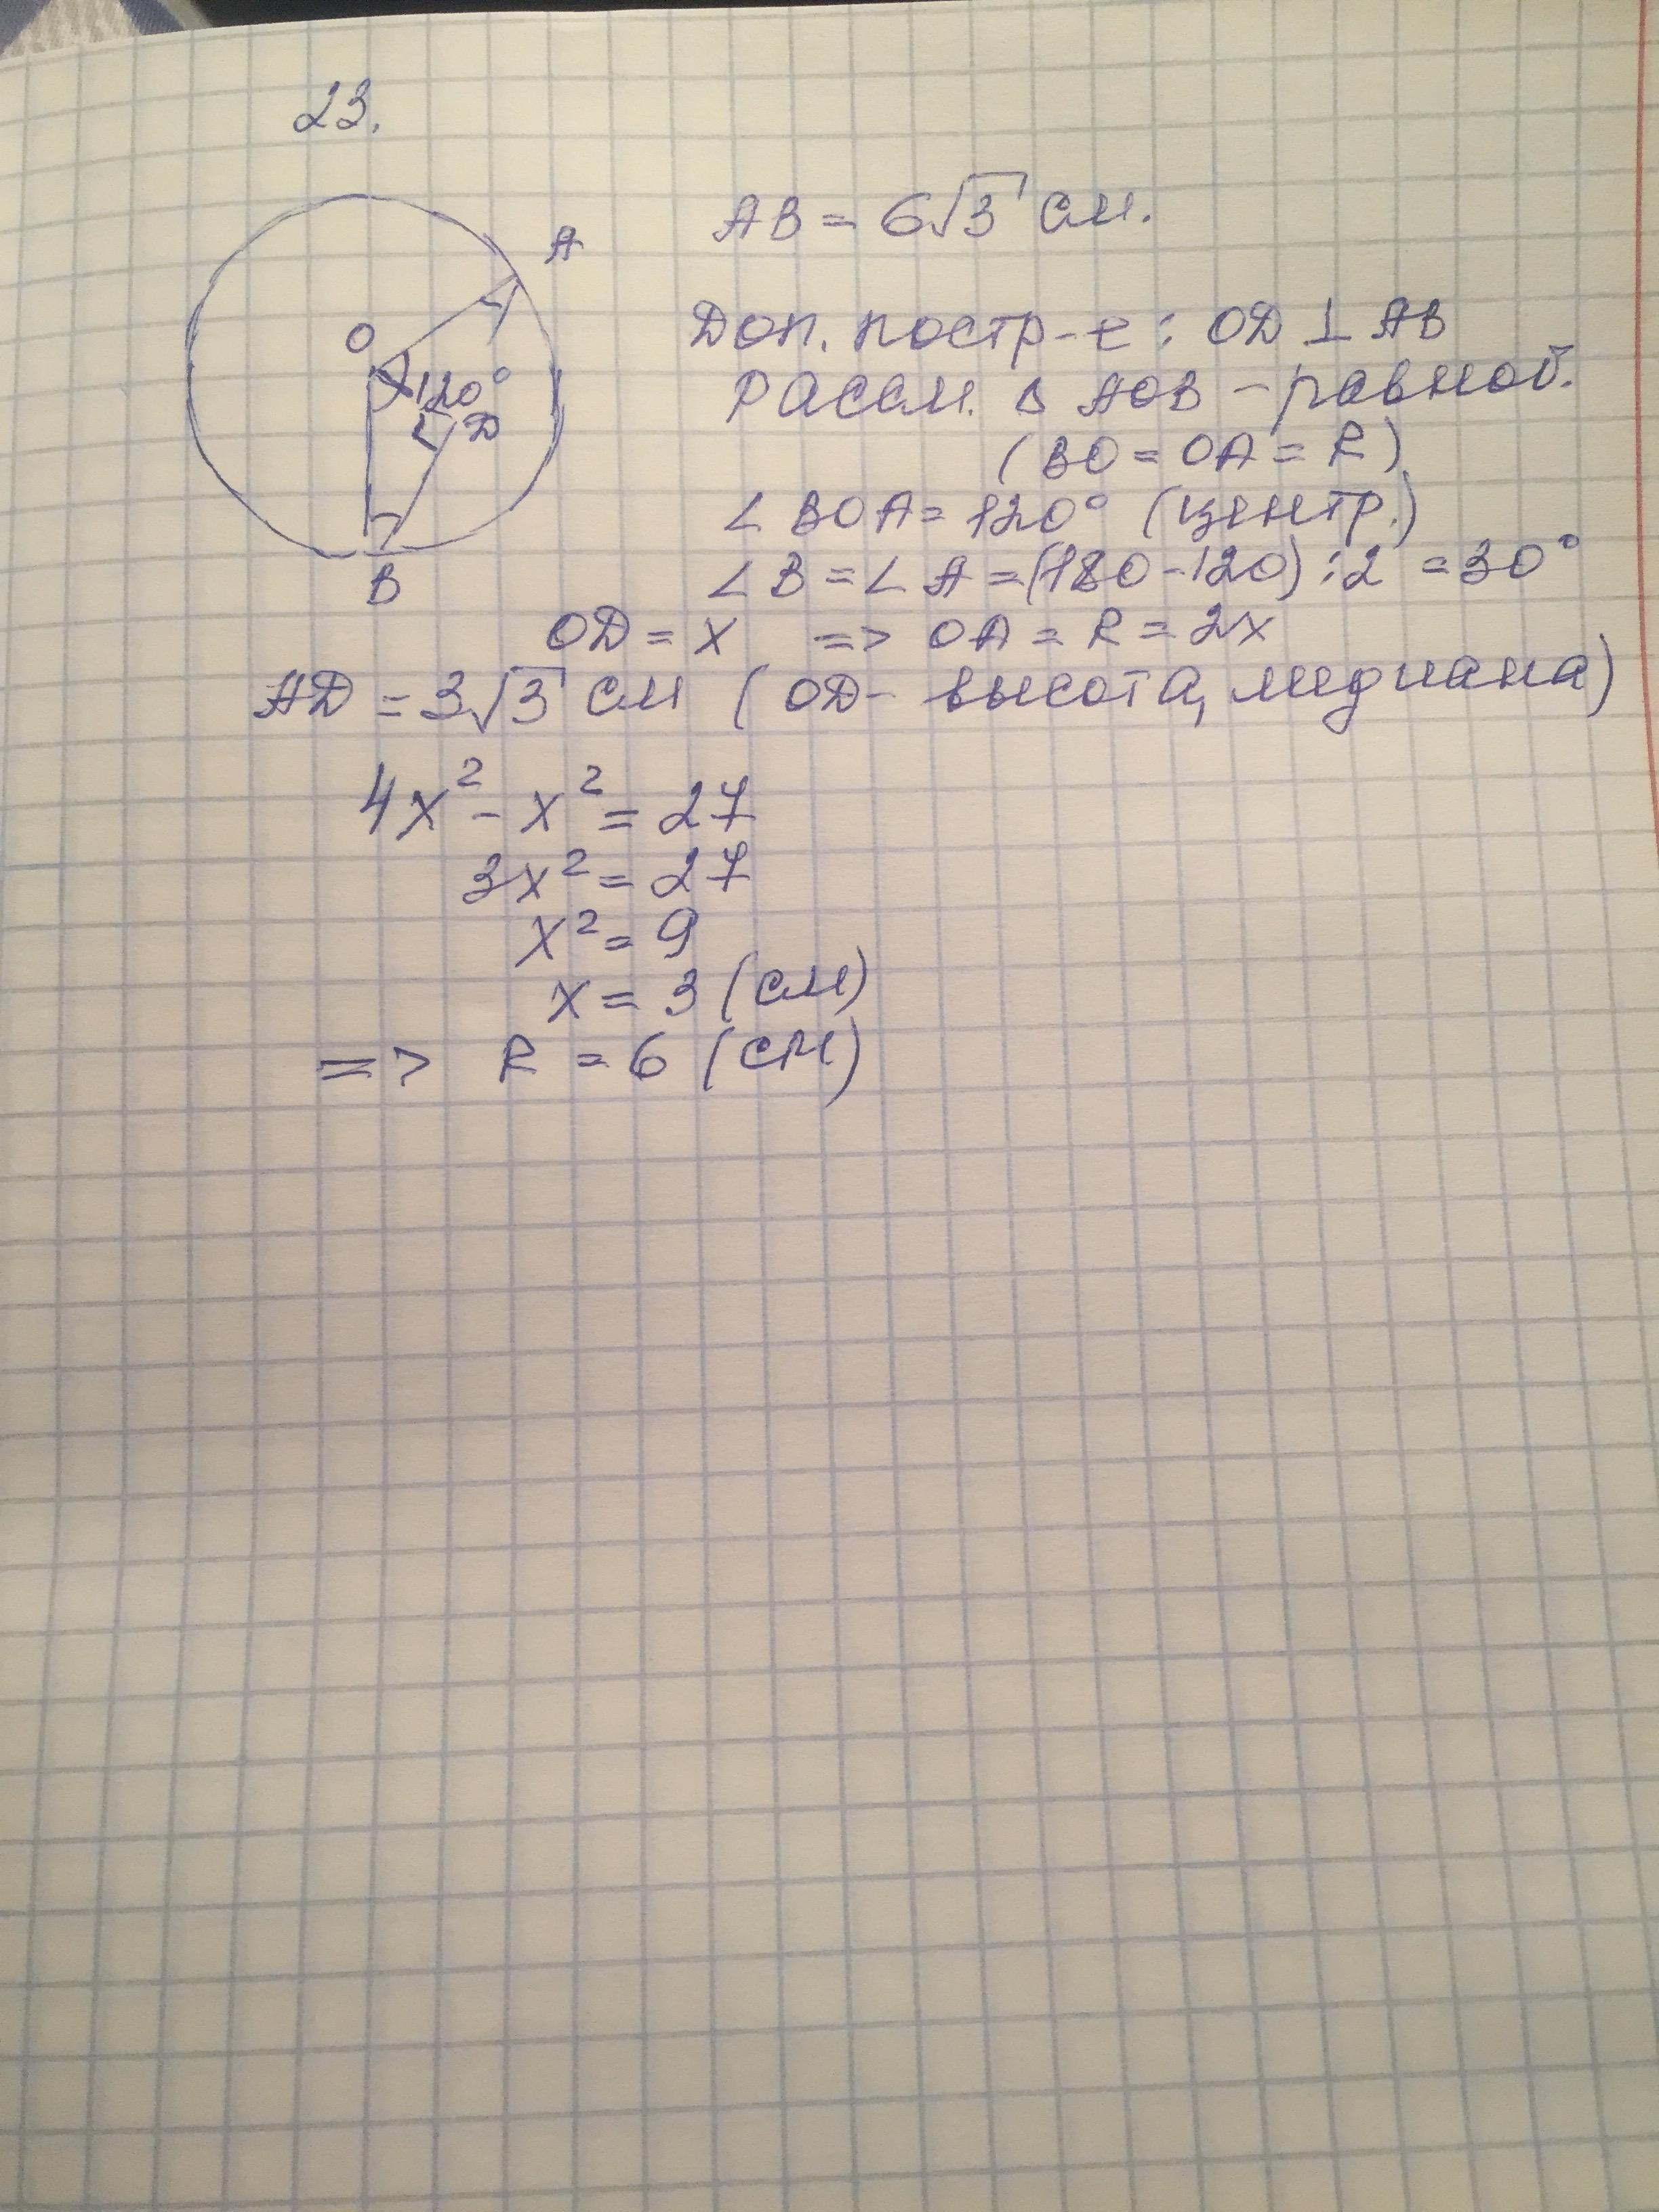 23.
A
O
120°
D
B
AB = 6√3 см.
Доп. постр-е: OD ⊥ AB
Рассм. Δ AOB - равноб.
(BO = OA = R)
∠ BOA = 120° (центр.)
∠ B = ∠ A = (180-120):2 = 30°
OD = x => OA = R = 2x
AD = 3√3 см (OD - высота, медиана)
4x² - x² = 27
3x² = 27
x² = 9
x = 3 (см)
=> R = 6 (см)